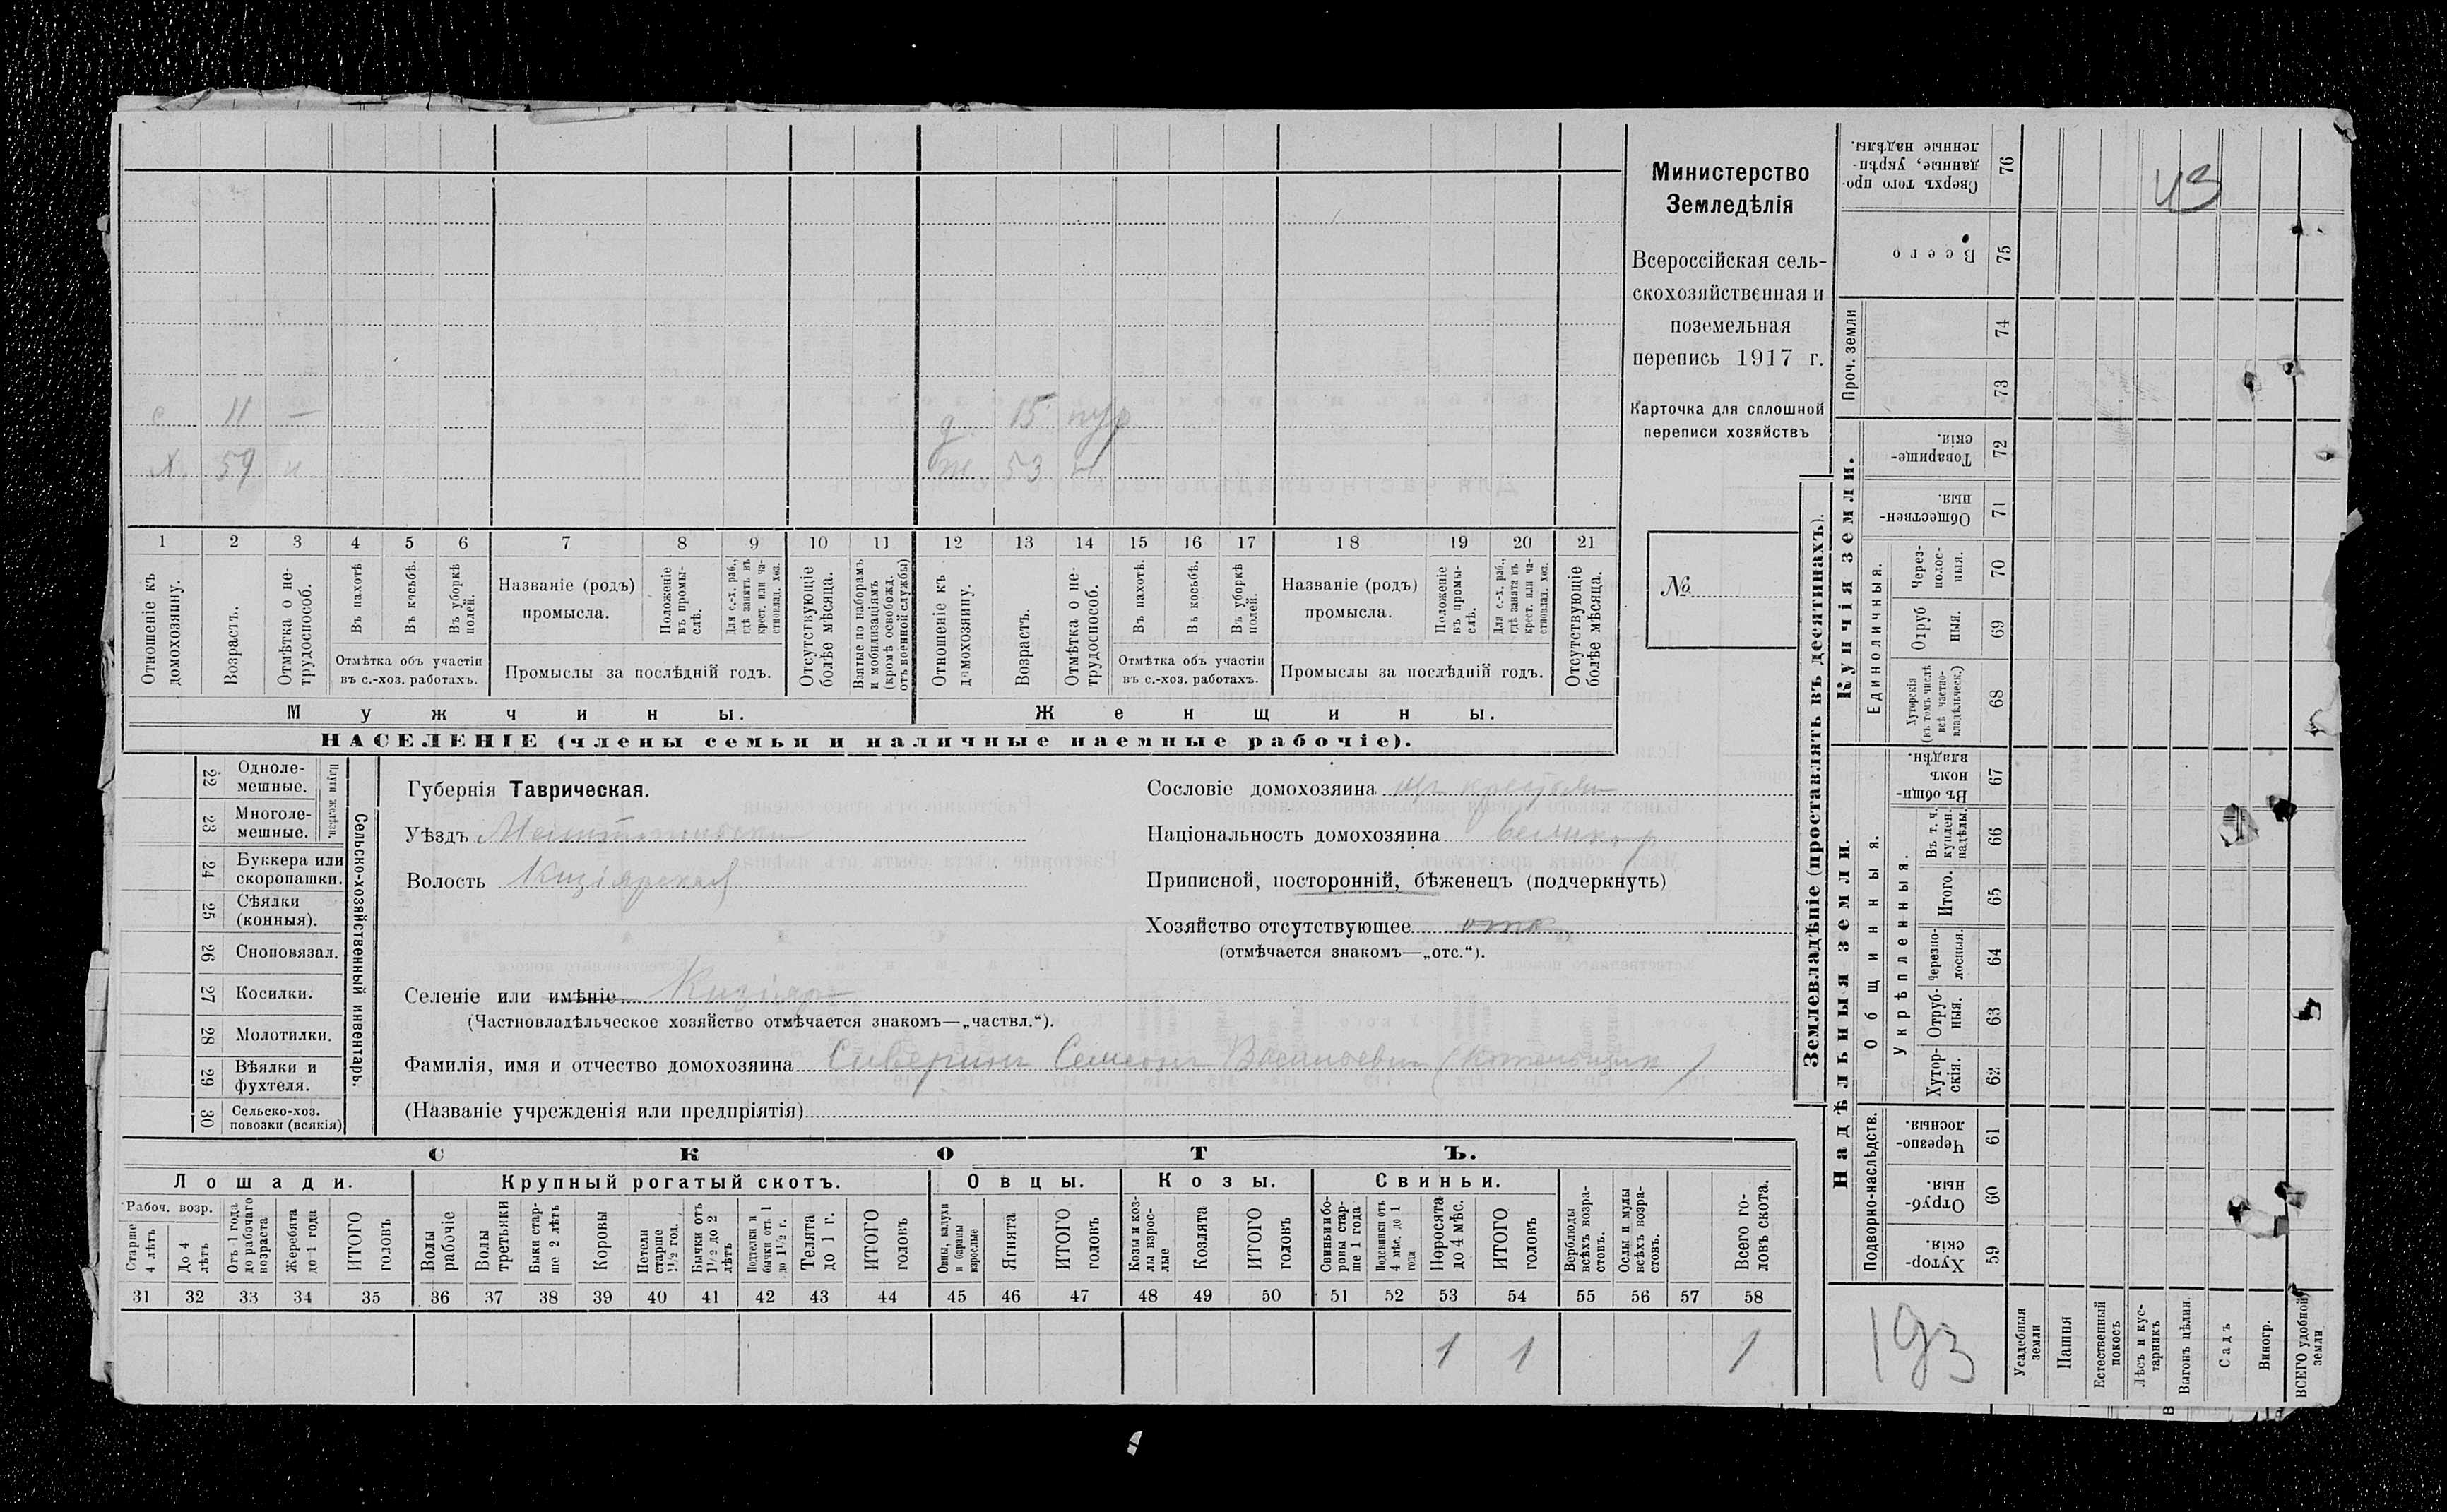 с 11 —
х 59 н
д. 15
ж 53 н
1 2 3 4 5 6 7 8 9 10 11 12 13 14 15 16 17 18 19 20 21
Отношеніе къ домохозяину.
Возрастъ.
Отмѣтка о не-
трудоспособ.
Въ пахотѣ
Въ косьбѣ.
Въ уборкѣ полей.
Отмѣтка объ участіи
въ с.-хоз. работахъ.
Названіе (родъ)
промысла.
Положеніе въ промы-
слѣ.
Для с.-х. раб., гдѣ занятъ въ крест. или ча-
стновлад. хоз.
Промыслы за послѣдній годъ.
Отсутствующіе болѣе мѣсяца.
Взятые по наборамъ и мобилизаціямъ (кромѣ освобожд. отъ военной службы)
Отношеніе къ домохозяину.
Возрастъ.
Отмѣтка о не-
трудоспособ.
Въ пахотѣ.
Въ косьбѣ.
Въ уборкѣ полей.
Отмѣтка объ участіи
въ с.-хоз. работахъ.
Названіе (родъ)
промысла.
Положеніе въ промы-
слѣ.
Для с.-х. раб., гдѣ занята въ крест. или ча-
стновлад. хоз.
Промыслы за послѣдній годъ.
Отсутствующіе болѣе мѣсяца.
Мужчины.
Женщины.
НАСЕЛЕНІЕ (члены семьи и наличные наемные рабочіе).
Министерство
Земледѣлія
Всероссійская сель-
скохозяйственная и
поземельная
перепись 1917 г.
Карточка для сплошной
переписи хозяйствъ
№
22 Одноле-
мешные.
23 Многоле-
мешные.
Плуги желѣзн.
24 Буккера или
скоропашки.
25 Сѣялки
(конныя).
26 Сноповязал.
27 Косилки.
28 Молотилки.
29 Вѣялки и
фухтеля.
30 Сельско-хоз.
повозки (всякія)
Сельско-хозяйственный инвентарь.
Губернія Таврическая.
Уѣздъ Мелитопольскій
Волость Кизіярская
Сословіе домохозяина
Національность домохозяина великор
Приписной, посторонній, бѣженецъ (подчеркнуть)
Хозяйство отсутствующее
(отмѣчается знакомъ—„отс.“).
Селеніе или имѣніе Кизіяръ
(Частновладѣльческое хозяйство отмѣчается знакомъ—„частвл.“).
Фамилія, имя и отчество домохозяина Сиверинъ Семенъ Васильевич
(Названіе учрежденія или предпріятія)
СКОТЪ.
Лошади.
Крупный рогатый скотъ.
Овцы.
Козы.
Свиньи.
Рабоч. возр.
Старше 4 лѣтъ
До 4 лѣтъ
Отъ 1 года до рабочаго возраста
Жеребята до 1 года
ИТОГО головъ
Волы рабочіе
Волы третьяки
Быки стар-
ше 2 лѣтъ
Коровы
Нетели старше 1½ год.
Бычки отъ 1½ до 2 лѣтъ
Подтелки и бычки отъ 1 до 1½ г.
Телята до 1 г.
ИТОГО головъ
Овцы, валухи и бараны взрослые
Ягнята
ИТОГО головъ
Козы и коз-
лы взрос-
лые
Козлята
ИТОГО головъ
Свиньи бо-
ровы стар-
ше 1 года
Подсвинки отъ 4 мѣс. до 1 года
Поросята до 4 мѣс.
ИТОГО головъ
Верблюды всѣхъ возра-
стовъ.
Ослы и мулы всѣхъ возра-
стовъ.
Всего го-
ловъ скота.
31 32 33 34 35 36 37 38 39 40 41 42 43 44 45 46 47 48 49 50 51 52 53 54 55 56 57 58
1 1 1
Землевладѣніе (проставлять въ десятинахъ).
Сверхъ того про-
данные, укрѣп-
ленные надѣлы.
76
43
Всего
75
Проч. земли
74
73
Купчія земли.
Товарище-
скія.
72
Обществен-
ныя.
71
Единоличныя.
Через-
полос-
ныя.
70
Отруб
ныя.
69
Хуторскія
(въ томъ числѣ
всѣ частно-
владѣльческ.)
68
Надѣльныя земли.
Общинныя.
Въ общи-
номъ
владѣн.
67
Укрѣпленныя.
Въ т. ч.
куплен.
надѣлы.
66
Итого.
65
Черезпо-
лосныя.
64
Отруб-
ныя.
63
Хутор-
скія.
62
Подворно-наслѣдств.
Черезпо-
лосныя.
61
Отруб-
ныя.
60
Хутор-
скія.
59
193
Усадебныя земли
Пашня
Естественный покосъ
Лѣсъ и кус-
тарникъ
Выгонъ цѣлин.
Садъ
Виногр.
ВСЕГО удобной земли